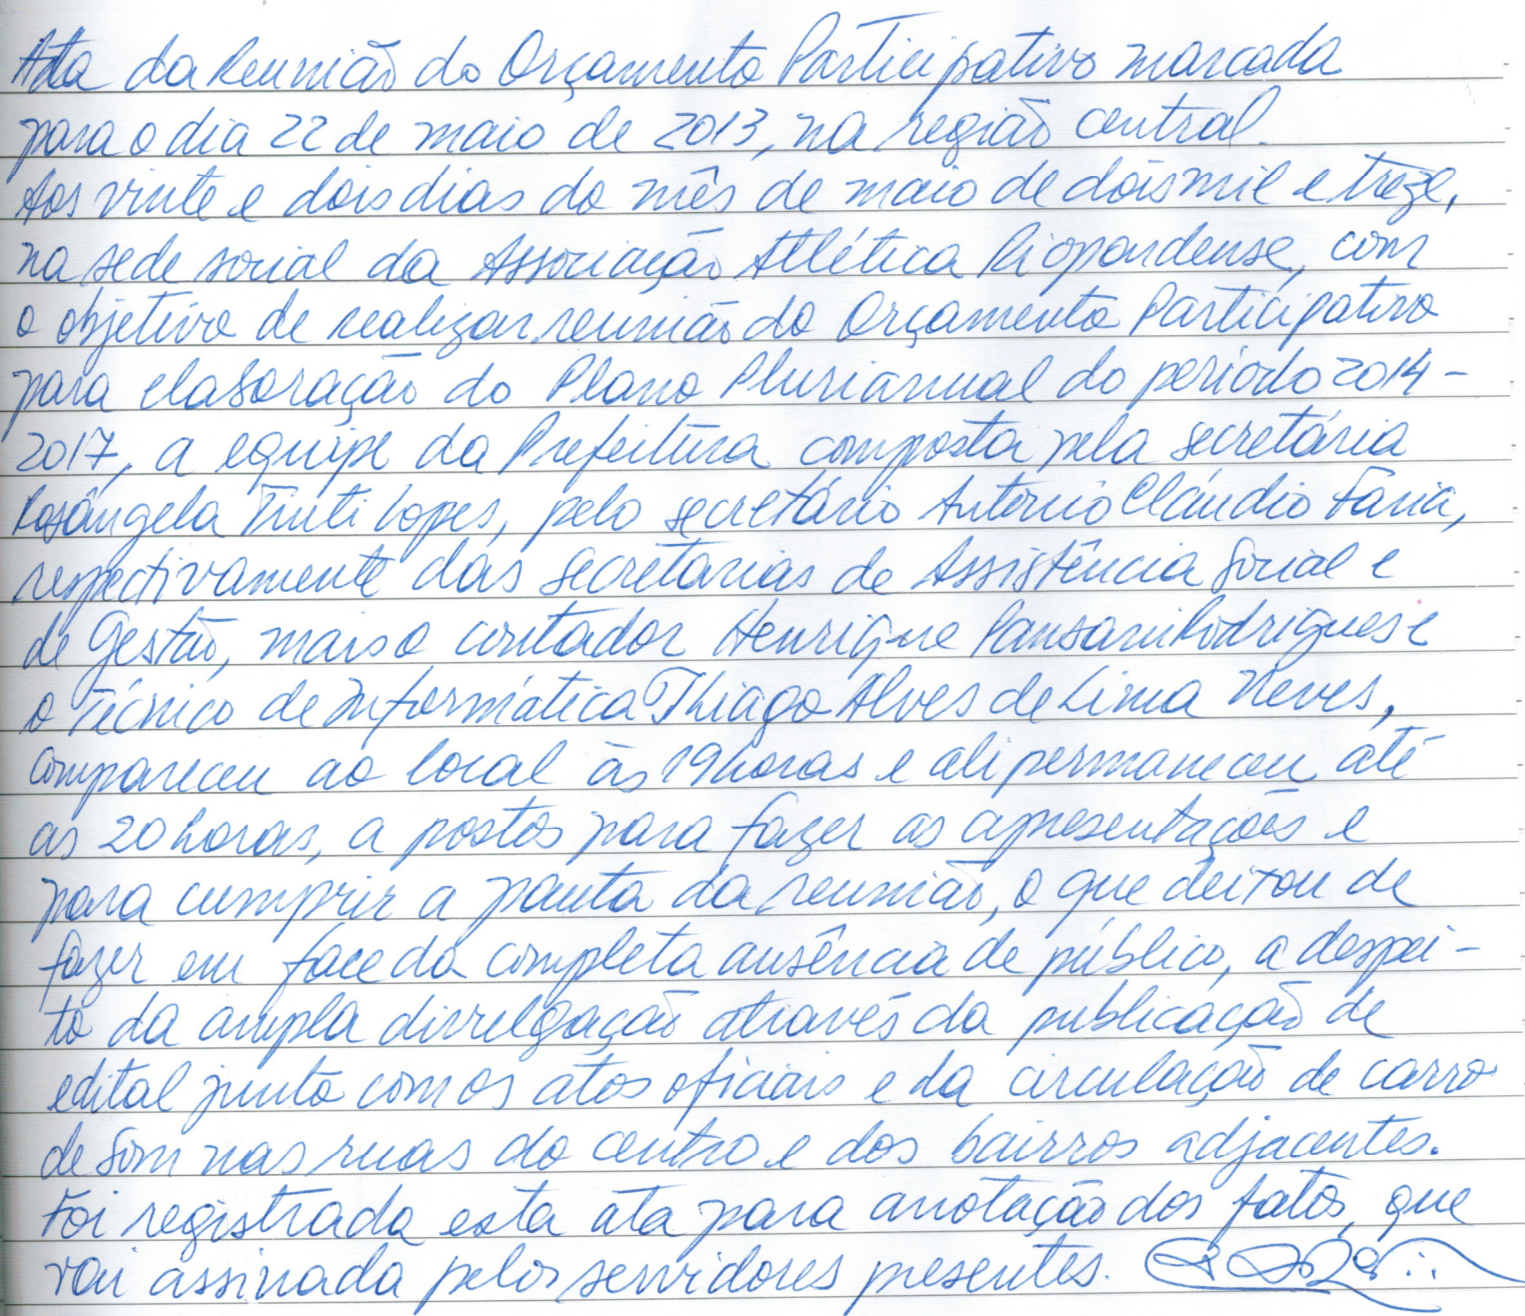 Ata da Reunião do Orçamento Participativo marcada
para o dia 22 de maio de 2013, na região central.
Aos vinte e dois dias do mês de maio de dois mil e treze,
na sede social da Associação Atlética Riopardense, com
o objetivo de realizar reunião do Orçamento Participativo
para elaboração do Plano Plurianual do período 2014-
2017, a equipe da Prefeitura composta pela secretária
Rosângela Tinti Lopes, pelo secretário Antonio Cláudio Faria,
respectivamente das secretarias de Assistência Social e
de Gestão, mais o contador Henrique Pansani Rodrigues e
o Técnico de Informática Thiago Alves de Lima Neves,
compareceu ao local às 19 horas e ali permaneceu até
as 20 horas, a postos para fazer as apresentações e
para cumprir a pauta da reunião, o que deixou de
fazer em face da completa ausência de público, a despei-
to da ampla divulgação através da publicação de
edital junto com os atos oficiais e da circulação de carro
de som nas ruas do centro e dos bairros adjacentes.
Foi registrada esta ata para anotação dos fatos, que
vai assinada pelos servidores presentes.